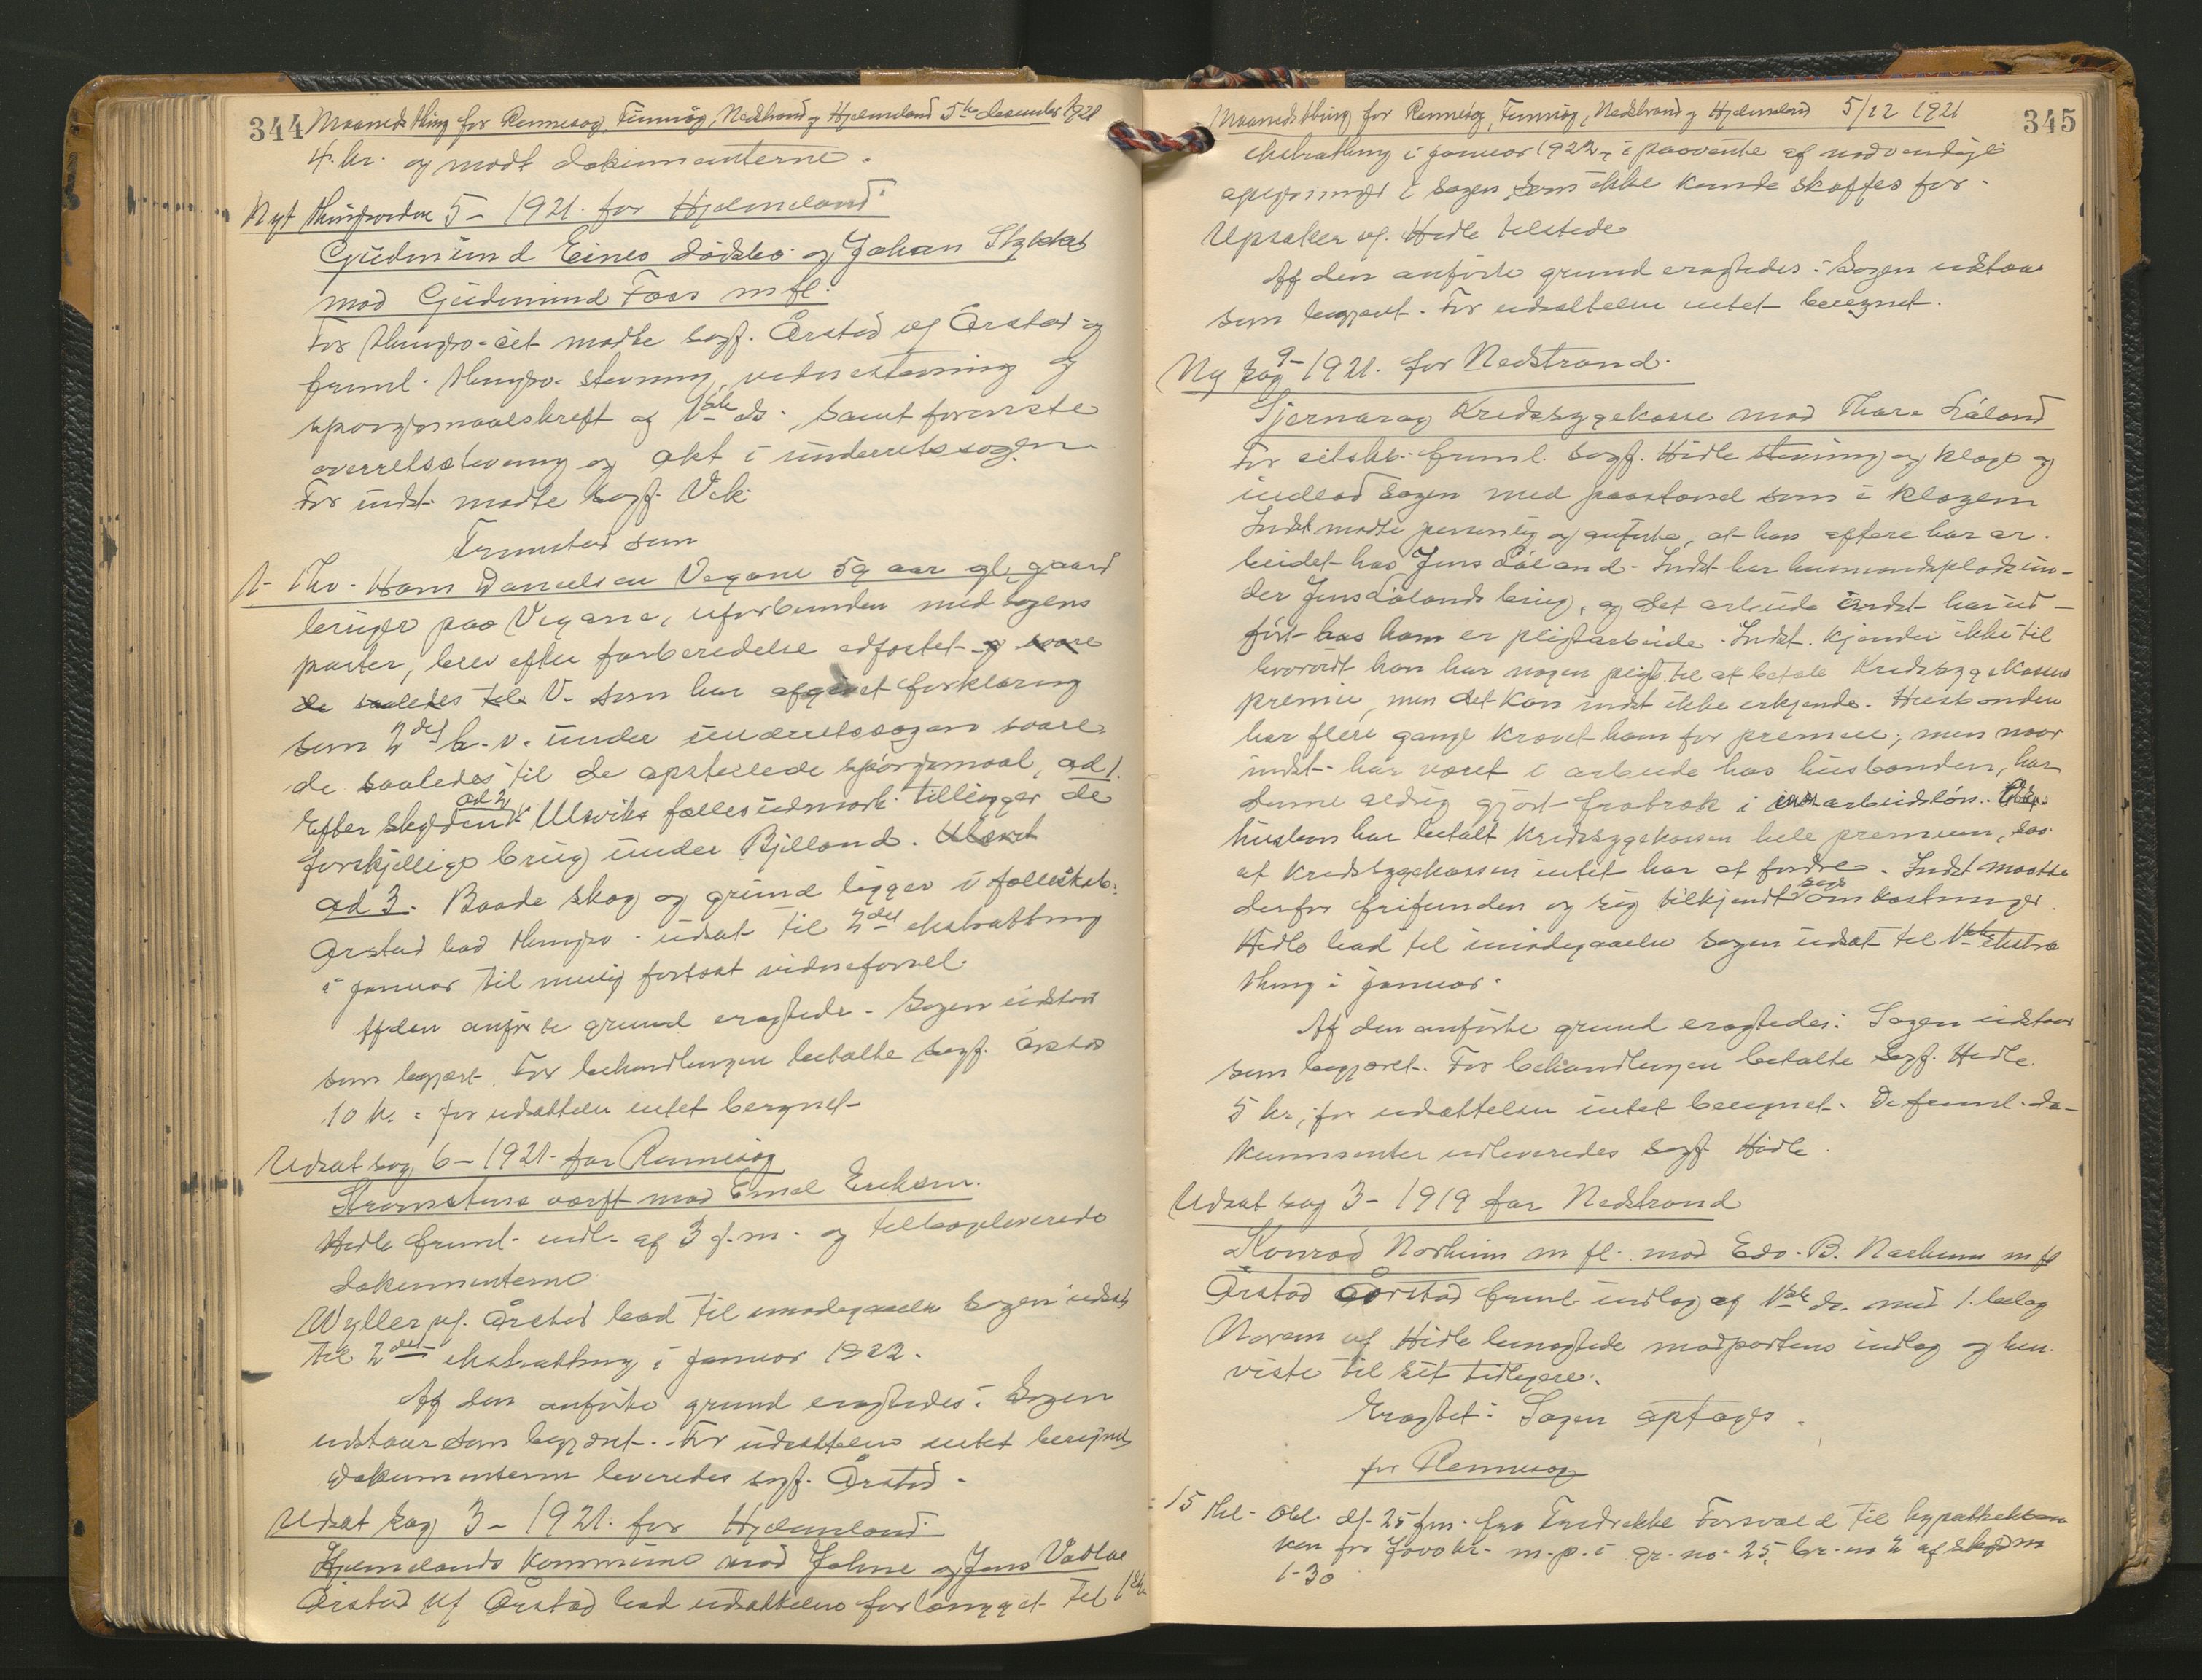 344 Maanedsthing for Rennesøy, Finnøy, Nedstrand og Hjelmeland 5te december 1921
4. kr. og modt dokumenterne.
Nyt thingsvidne 5 - 1921. for Hjelmeland
Gudmund Eines dødsbo og Johan Stykket
mod Gudmund Foss m fl.
For thingsv. mødte sagf. Årstad vf Årstad og
freml. thingsv. stevning, vidnestevning og
spørgsmaalskrift af 1ste ds. samt forevista
overretsstevning og akt i underretssagen
For indst. mødte sagf. Vek.
Fremstod som
1- thv. Hans Danielsen Vegane 59 aar gl, gaard
bruger paa Vegane, uforbunden med sagens
parter, blev efter forberedelse edfæstet og svare
de saaledes til V. som har afgivet forklaring
som 2det h. v. under underretssagen svare
de saaledes til de opstillede spørgsmaal, ad 1.
Efter skyldn ad 2 Ulsviks fællesudmark tilligger de
forskjellige brug under Bjilland.
ad 3. Baade skog og grund ligger i fælleskab.
Årstad bad thingsv. udsat til 2det ekstrathing
i januar til mulig fortsat vidneførsel.
Af den anførte grund eragtedes. Sagen udstaar
som begjært. For behandlingen betalte sagf. Årstad
10 kr. : for udsættelse intet beregnet
Udsat sag 6 - 1921. for Rennesøy
Strømstens værft mod Emil Eriksen.
Hidle freml. indl. af 3 d. m. og tilbageleverede
dokumenterne
Wyller vf. Årstad bad til imødegaaelse sagen udsat
til 2det ekstrathing i januar 1922.
Af den anførte grund eragtedes: Sagen
udstaar som begjæret. For udsættelsen intet beregnet
Dokumenterne leveredes sagf. Årstad.
Udsat sag 3 - 1921. for Hjelmeland
Hjelmelands kommune mod Johne og Jens Vadla
Årstad vf Årstad bad udsættelsen forlænget til 1ste
Maanedsthing for Rennesøy, Finnøy, Nedstrand og Hjelmeland 5/12 1921 345
ekstrathing i januar 1922 i paavente af nødvendige
oplysninger i sagen, som ikke kunde skaffes før.
Upsaker vf. Hidle tilstede
Af den anførte grund eragtedes: Sagen udstaar
som begjært. For udsættelsen intet beregnet.
Ny sag 9 - 1921. for Nedstrand.
Sjernarøy Kredssygekasse mod Thore Låland
For citskb. freml. sagf. Hidle stevning og klage og
indlod sagen med paastand som i klagen
Indst mødte personlig og anførte, at han oftere har ar-
beidet hos Jens Låland. Indst har husmandsplads un-
der Jens Lålands brug, og det arbeide indst har ud-
ført hos ham er pligtarbeide. Indst. kjender ikke til
hvorvidt han har nogen pligt til at betale Kredssygekassen
premie, men det kan indst ikke erkjende. Husbonden
har flere gange krævet ham for premien, men naar
indst. har været i arbeide hos husbonden, har
denne aldrig gjort frabræk i indst arbeidsløn.
husbon har betalt kredssygekassen hele premien, saa
at Kredssygekassen intet har at fordre. Indst maatte
derfor frifindes og sig tilkjendt sags omkostninger.
Hidle bad til imødegaaelse sagen udsat til 1ste ekstra
thing i januar.
Af den anførte grund eragtedes: Sagen udstaar
som begjæret. For behandlingen betalte sagf. Hidle
5 kr, for udsættelsen intet beregnet. De freml. do-
kumenter udleveredes sagf Hidle.
Udsat sag 3 - 1919 for Nedstrand
Konrad Norheim m fl. mod Edv. B. Narheim m fl
Årstad Årstad freml indlæg af 1ste ds. med 1. bilag
Næsen vf Hidle benægtede modpartens indlæg og hen-
viste til sit tidligere.
Eragtet: Sagen optages.
for Rennesøy
15 thl. Obl. df. 25 f.m. fra Fredrikke Forsvald til hypothekban
ken for kr. m. p. i gr. no. 25, br. no 2 af skyldm
1-30